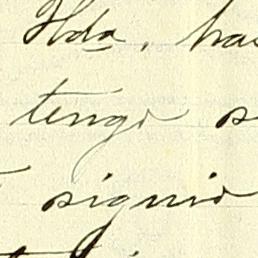 Hda, has
tengo s
siguio